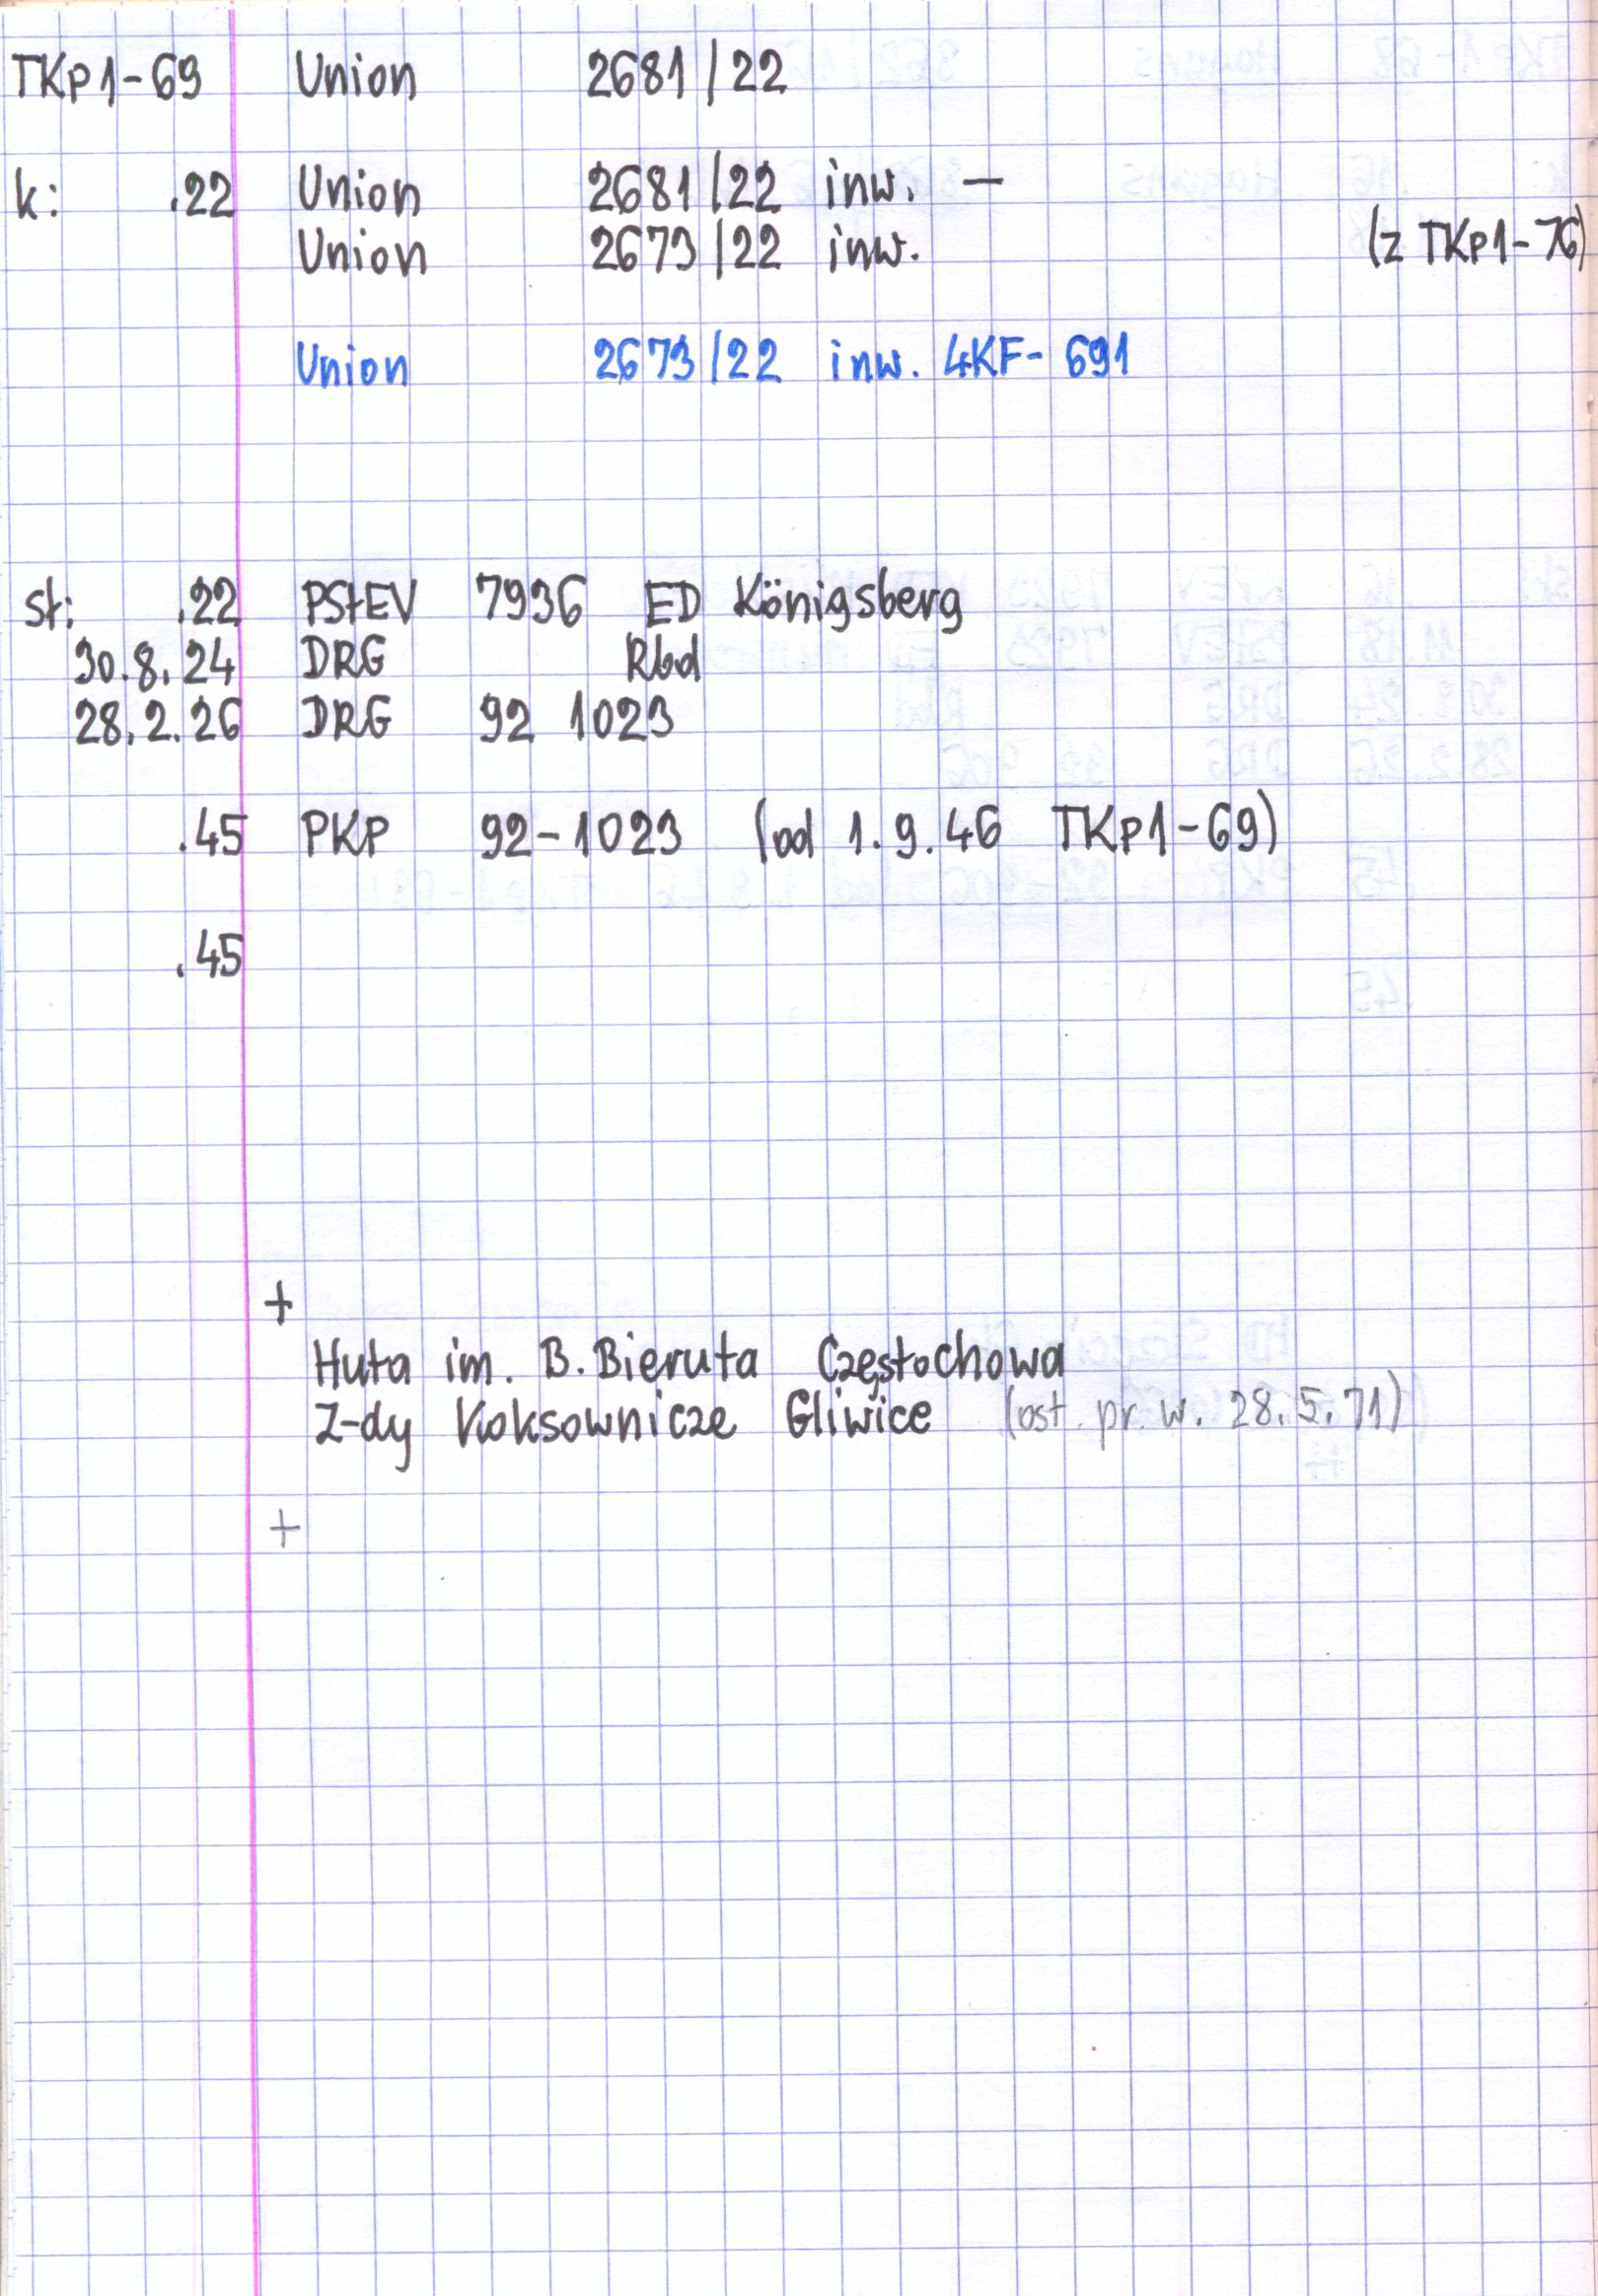 TKp1-69 Union 2681/22
k: .22 Union 2681/22 inw. —
Union 2673/22 inw. (z TKp1-76)
Union 2673/22 inw. 4KF-691
st: .22 PStEV 7936 ED Königsberg
30.8.24 DRG Rbd
28.2.26 DRG 92 1023
.45 PKP 92-1023 (od 1.9.46 TKp1-69)
.45
+
Huta im. B. Bieruta Częstochowa
Z-dy Koksownicze Gliwice (ost. pr. w. 28.5.71)
+